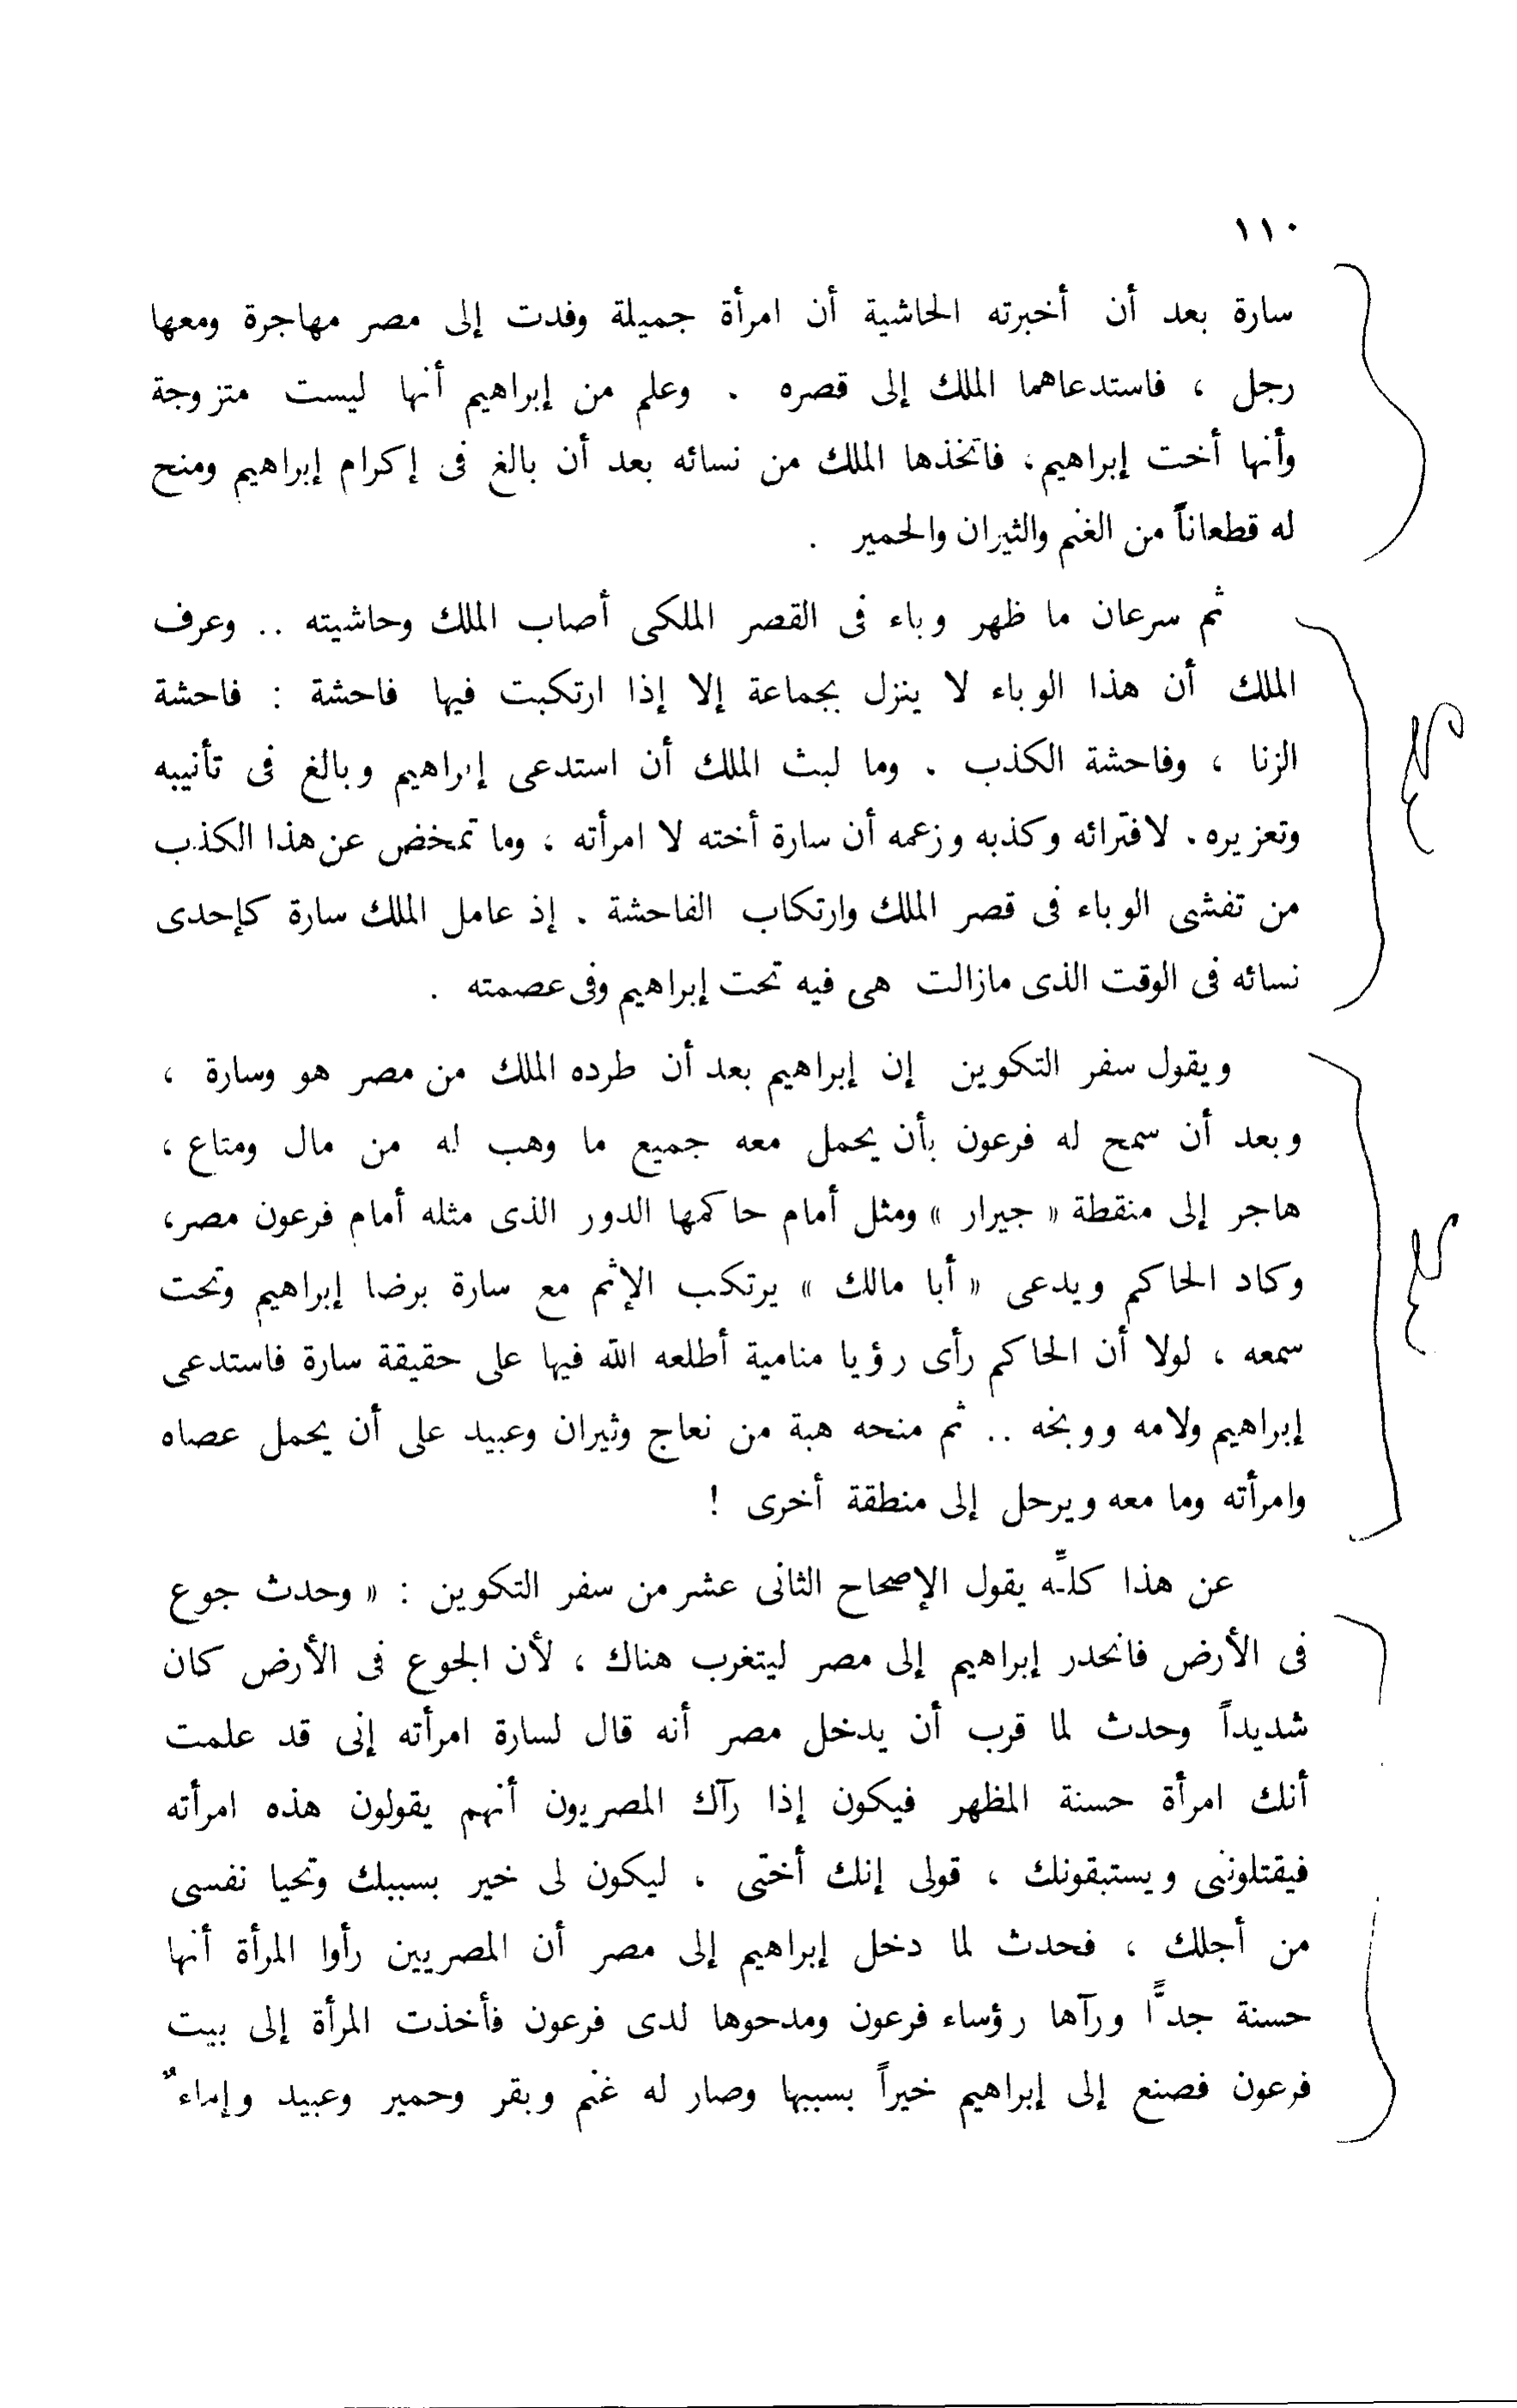 ١١٠
سارة بعد أن أخبرته الحاشية أن امرأة جميلة وفدت إلى مصر مهاجرة ومعها
رجل ، فاستدعاهما الملك إلى قصره . وعلم من إبراهيم أنها ليست متزوجة
وأنها أخت إبراهيم، فاتخذها الملك من نسائه بعد أن بالغ فى إكرام إبراهيم ومنح
له قطعاناً من الغنم والثيران والحمير .
ثم سرعان ما ظهر وباء فى القصر الملكى أصاب الملك وحاشيته .. وعرف
الملك أن هذا الوباء لا ينزل بجماعة إلا إذا ارتكبت فيها فاحشة : فاحشة
الزنا ، وفاحشة الكذب . وما لبث الملك أن استدعى إبراهيم وبالغ فى تأنيبه
وتعزيره. لافترائه وكذبه وزعمه أن سارة أخته لا امرأته ، وما تمخض عن هذا الكذب
من تفشى الوباء فى قصر الملك وارتكاب الفاحشة . إذ عامل الملك سارة كإحدى
نسائه فى الوقت الذى مازالت هى فيه تحت إبراهيم وفى عصمته .
ويقول سفر التكوين إن إبراهيم بعد أن طرده الملك من مصر هو وسارة ،
وبعد أن سمح له فرعون بأن يحمل معه جميع ما وهب له من مال ومتاع ،
هاجر إلى منقطة « جيرار » ومثل أمام حاكمها الدور الذى مثله أمام فرعون مصر،
وكاد الحاكم ويدعى « أبا مالك » يرتكب الإثم مع سارة برضا إبراهيم وتحت
سمعه ، لولا أن الحاكم رأى رؤيا منامية أطلعه الله فيها على حقيقة سارة فاستدعى
إبراهيم ولامه ووبخه .. ثم منحه هبة من نعاج وثيران وعبيد على أن يحمل عصاه
وامرأته وما معه ويرحل إلى منطقة أخرى !
عن هذا كلِّه يقول الإصحاح الثانى عشر من سفر التكوين : « وحدث جوع
فى الأرض فانحدر إبراهيم إلى مصر ليتغرب هناك ، لأن الجوع فى الأرض كان
شديداً وحدث لما قرب أن يدخل مصر أنه قال لسارة امرأته إنى قد علمت
أنك امرأة حسنة المظهر فيكون إذا رآك المصريون أنهم يقولون هذه امرأته
فيقتلوننى ويستبقونك ، قولى إنك أختى ، ليكون لى خير بسببلك وتحيا نفسى
من أجلك ، فحدث لما دخل إبراهيم إلى مصر أن المصريين رأوا المرأة أنها
حسنة جدًّا ورآها رؤساء فرعون ومدحوها لدى فرعون فأخذت المرأة إلى بيت
فرعون فصنع إلى إبراهيم خيراً بسببها وصار له غنم وبقر وحمير وعبيد وإماءٌ